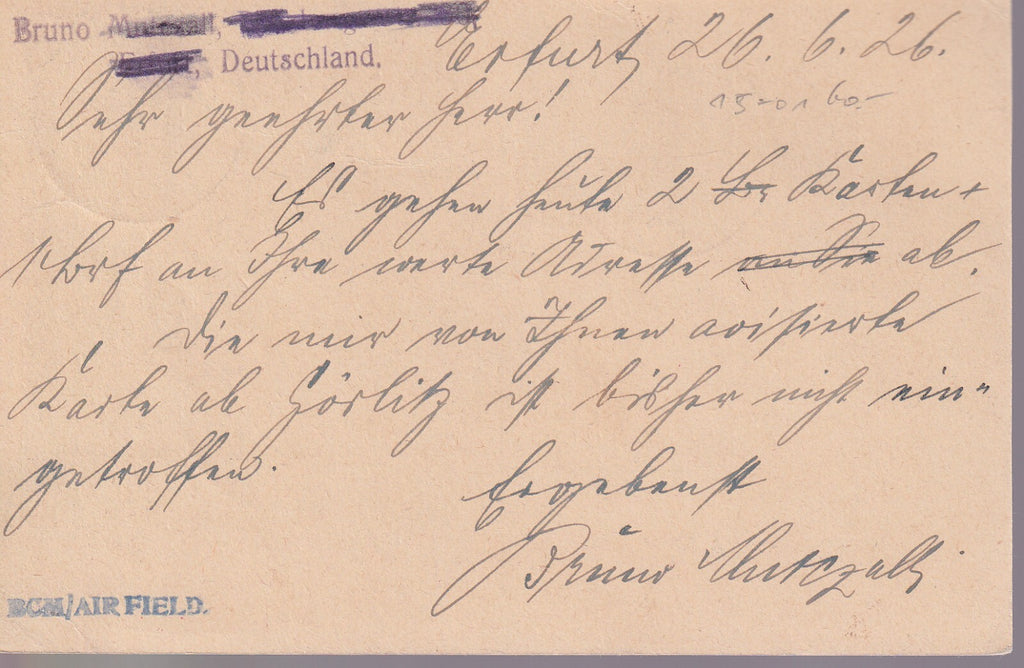 Bruno
Deutschland.
Erfurt, 26. 6. 26.
Sehr geehrter Herr!
Es gehen heute 2 Br Karten +
1 Brf an Ihre werte Adresse an Sie ab.
Die mir von Ihnen avisierte
Karte ab Görlitz ist bisher nicht ein-
getroffen.
Ergebenst
Bruno
BCM/AIRFIELD.